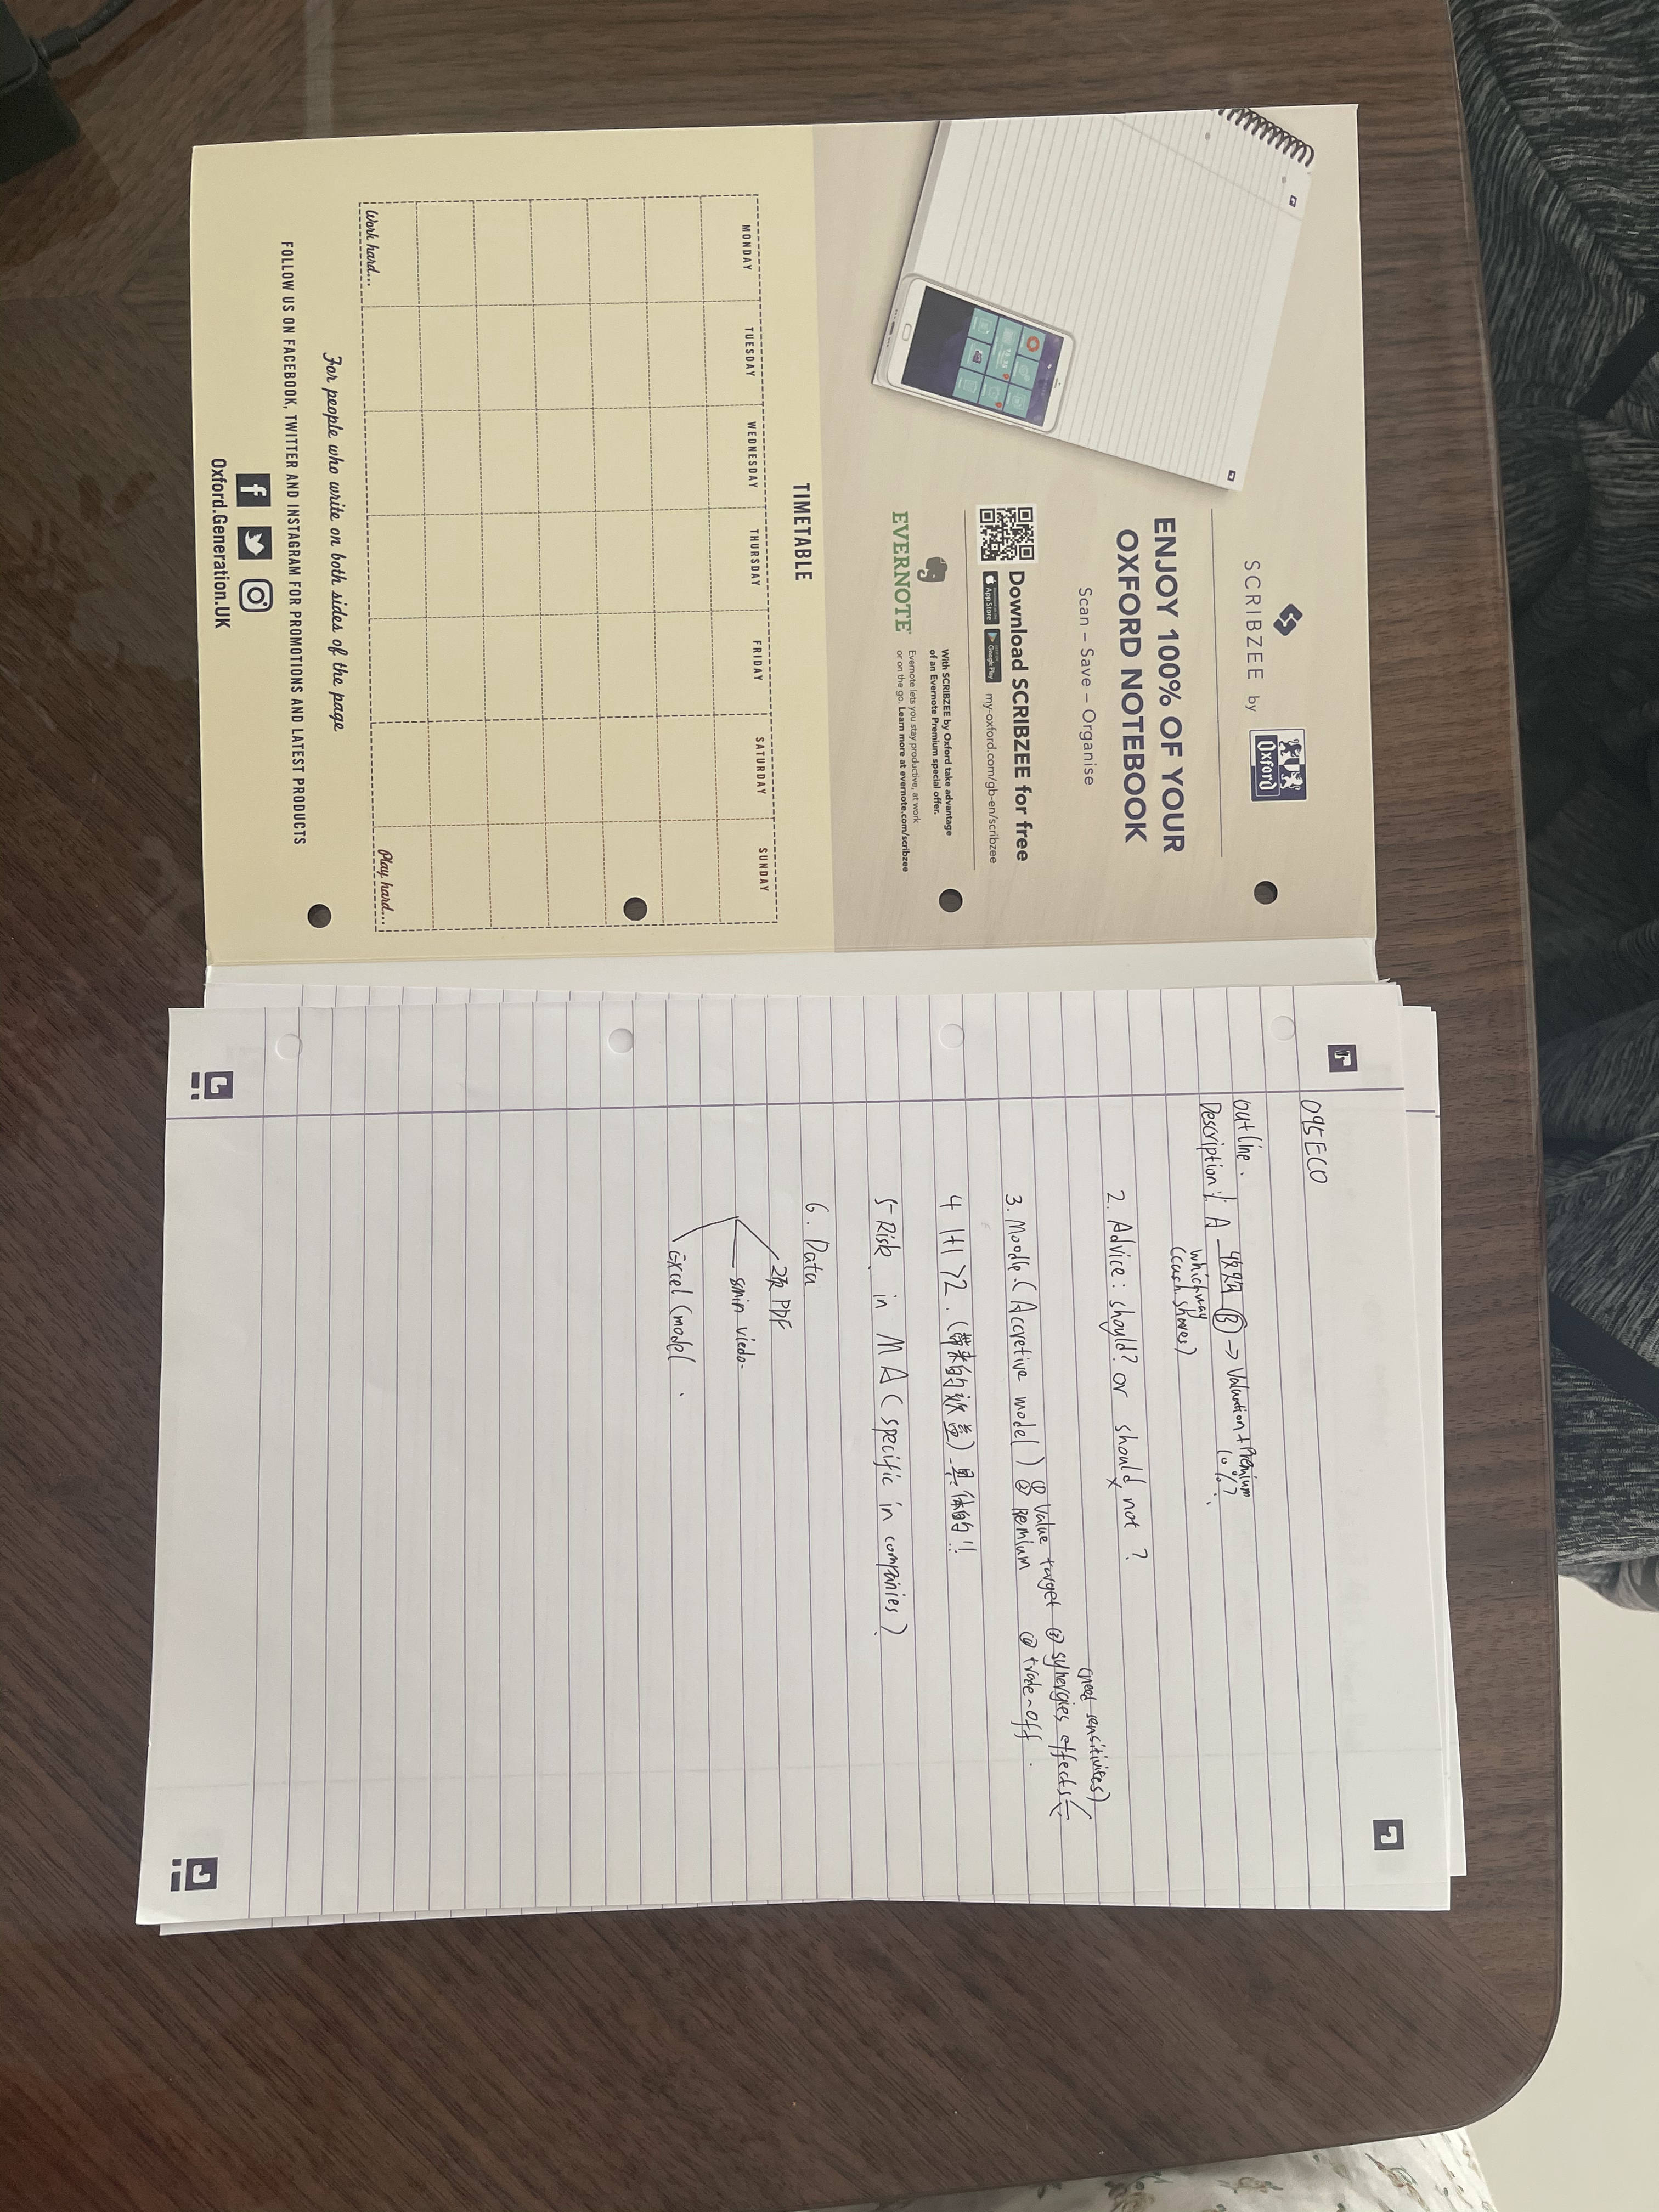 SCRIBZEE by
Oxford
ENJOY 100% OF YOUR
OXFORD NOTEBOOK
Scan – Save – Organise
Download SCRIBZEE for free
App Store
Google Play
my-oxford.com/gb-en/scribzee
EVERNOTE
With SCRIBZEE by Oxford take advantage
of an Evernote Premium special offer.
Evernote lets you stay productive, at work
or on the go. Learn more at evernote.com/scribzee
TIMETABLE
MONDAY TUESDAY WEDNESDAY THURSDAY FRIDAY SATURDAY SUNDAY
Work hard...
Play hard...
For people who write on both sides of the page
FOLLOW US ON FACEBOOK, TWITTER AND INSTAGRAM FOR PROMOTIONS AND LATEST PRODUCTS
Oxford.Generation.UK
095ECO
outline.
Description 1. A 收购 B → Valuation + Premium
10%?
which way
(cash shares)
2. Advice: should? or should not?
(need sensitivites)
① Value target ③ synergies effects
3. Moodle. (Accretive model) ② Premium ④ trade-off.
4 1+1 >2. (带来的效益) 具体的!!
5 Risk in MA (specific in companies)
6. Data
2页 PDF
8min viedo
Excel (model.